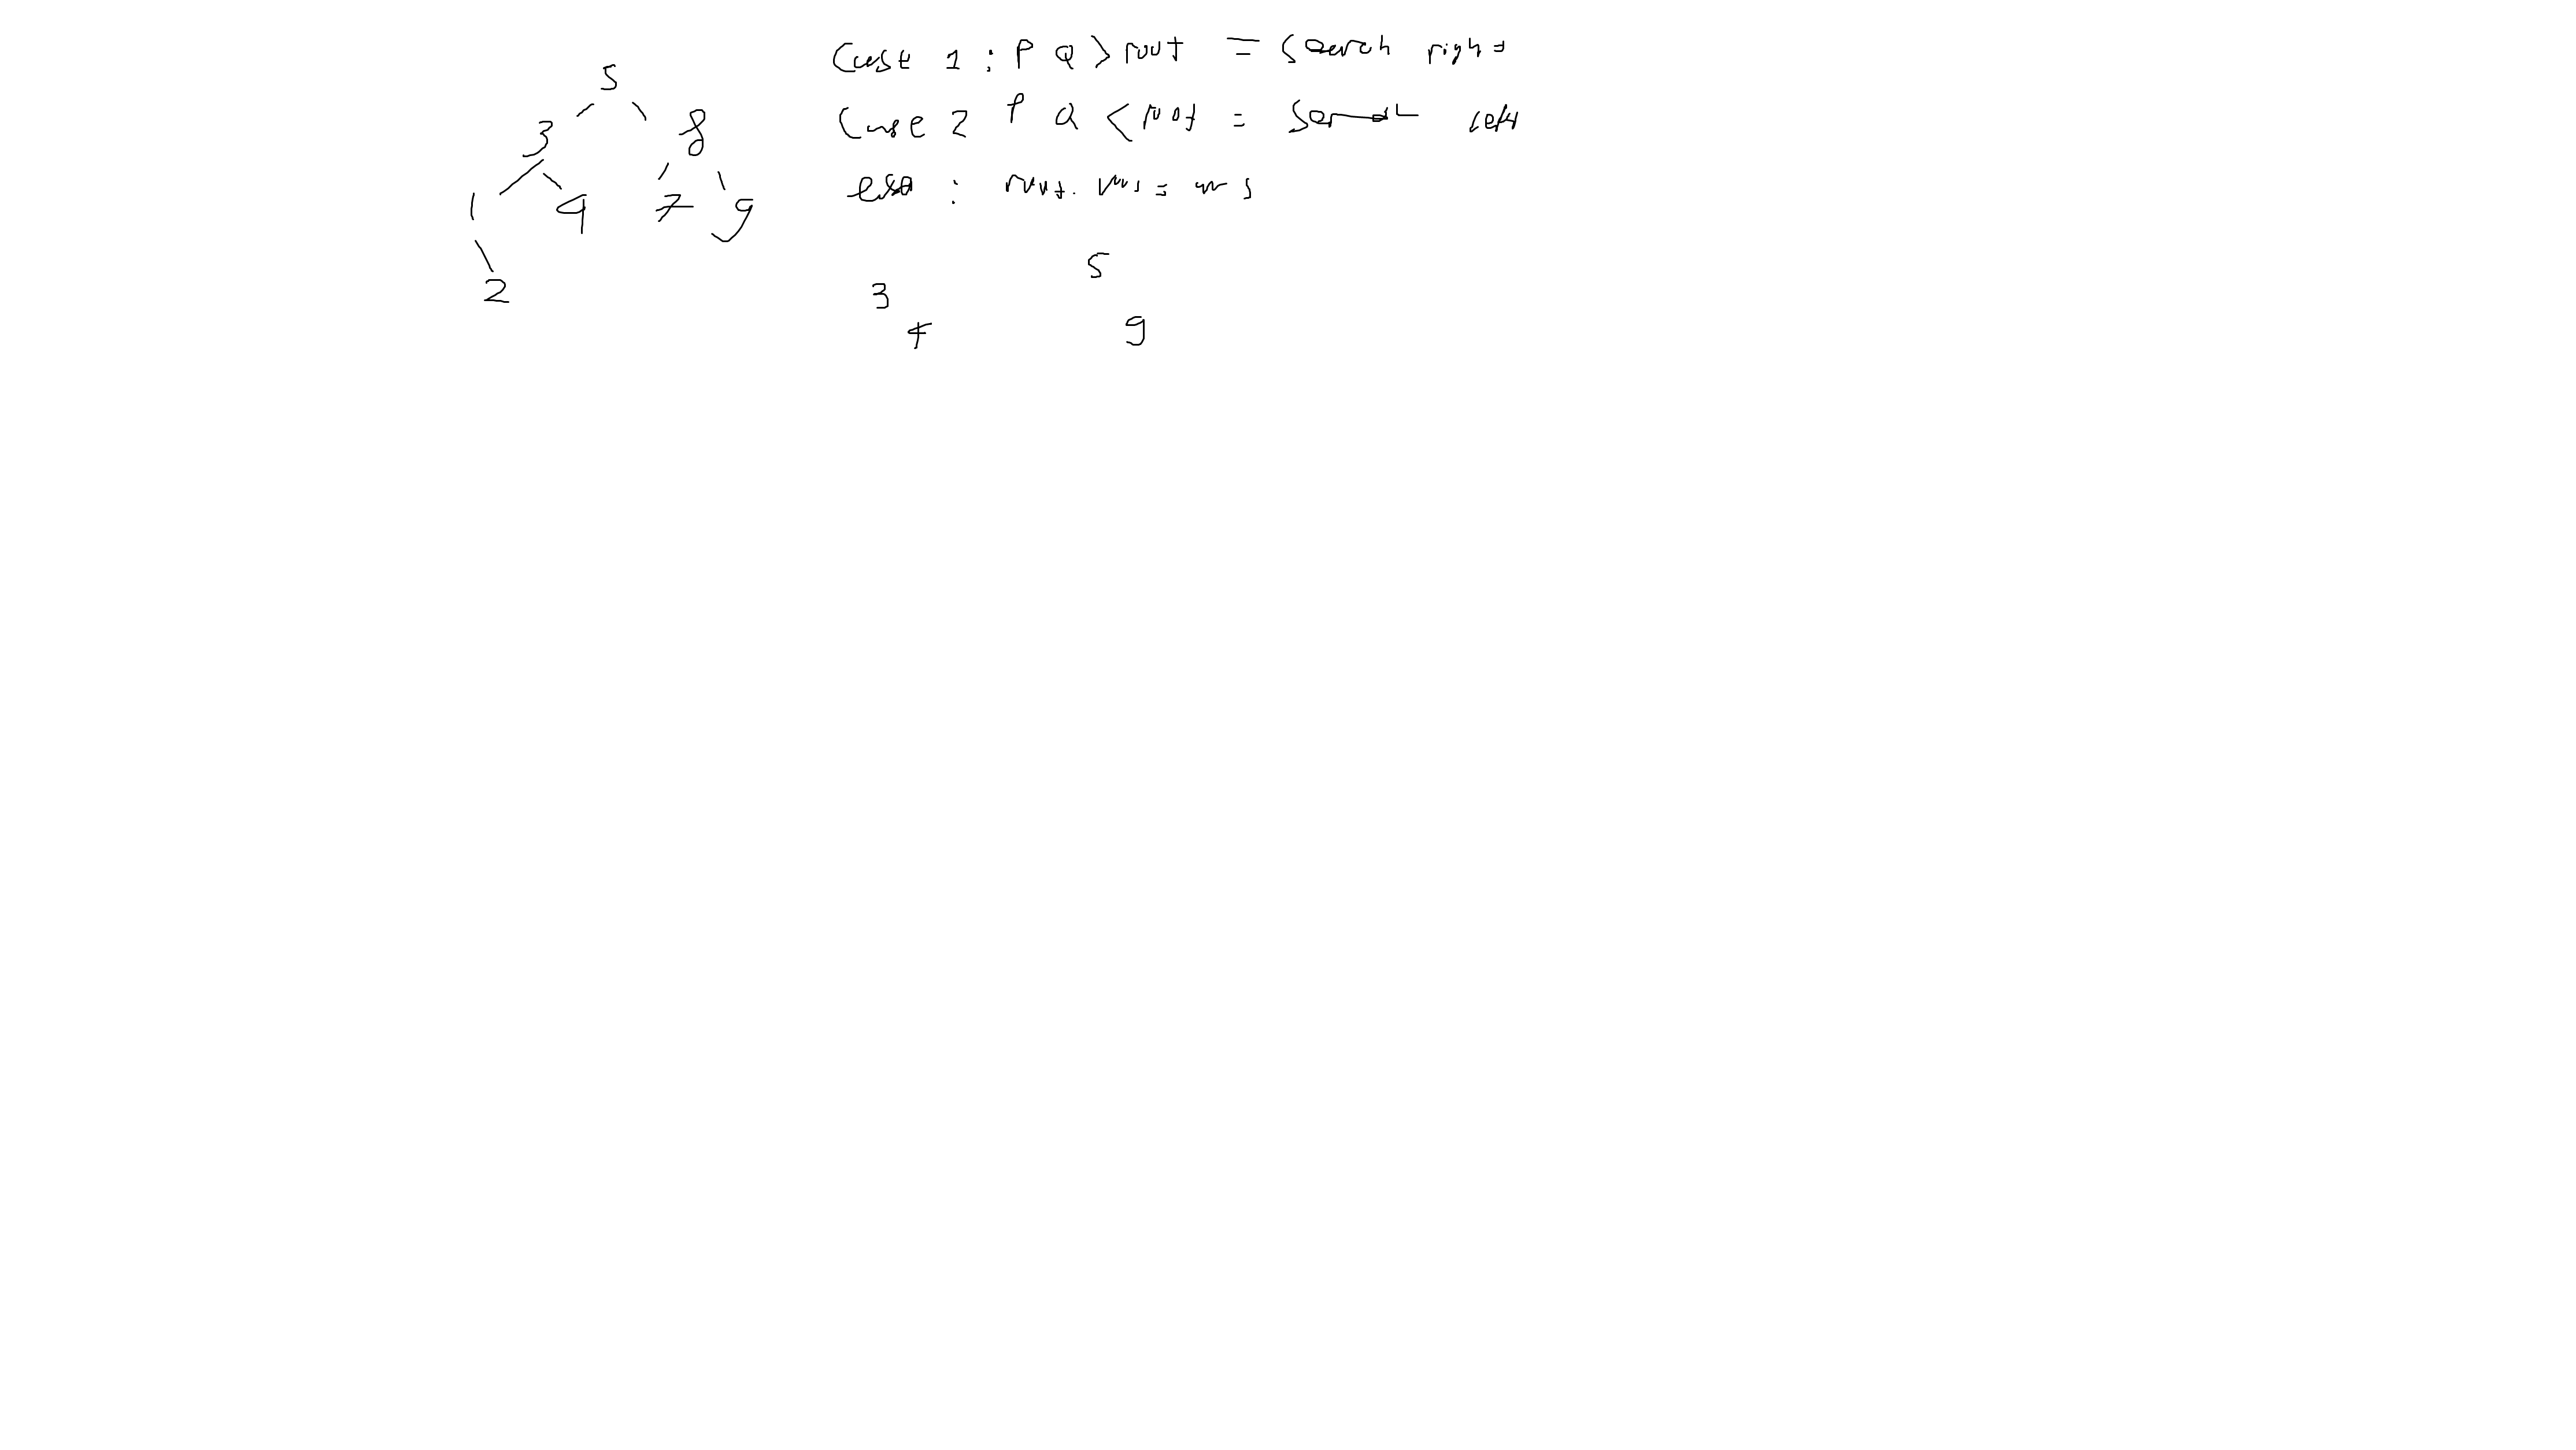 5
3 8
1 4 7 9
2
Case 1 : P Q > root = search right
Case 2 P Q < root = Search left
else : root. =
3 5
4 9